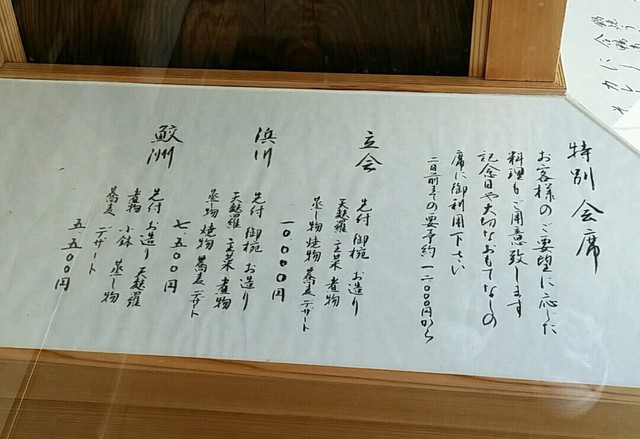 特別会席
お客様のご要望に応じた
料理もご用意致します
記念日や大切なおもてなしの
席に御利用下さい
二日前までの要予約 一二〇〇〇円から
立会
先付 御椀 お造り
天麩羅 主菜 煮物
蒸し物 焼物 蕎麦 デザート
一〇〇〇〇円
浜川
先付 御椀 お造り
天麩羅 主菜 煮物
蒸し物 焼物 蕎麦 デザート
七、五〇〇円
鮫洲
先付 お造り 天麩羅
煮物 小鉢 蒸し物
蕎麦 デザート
五、五〇〇円